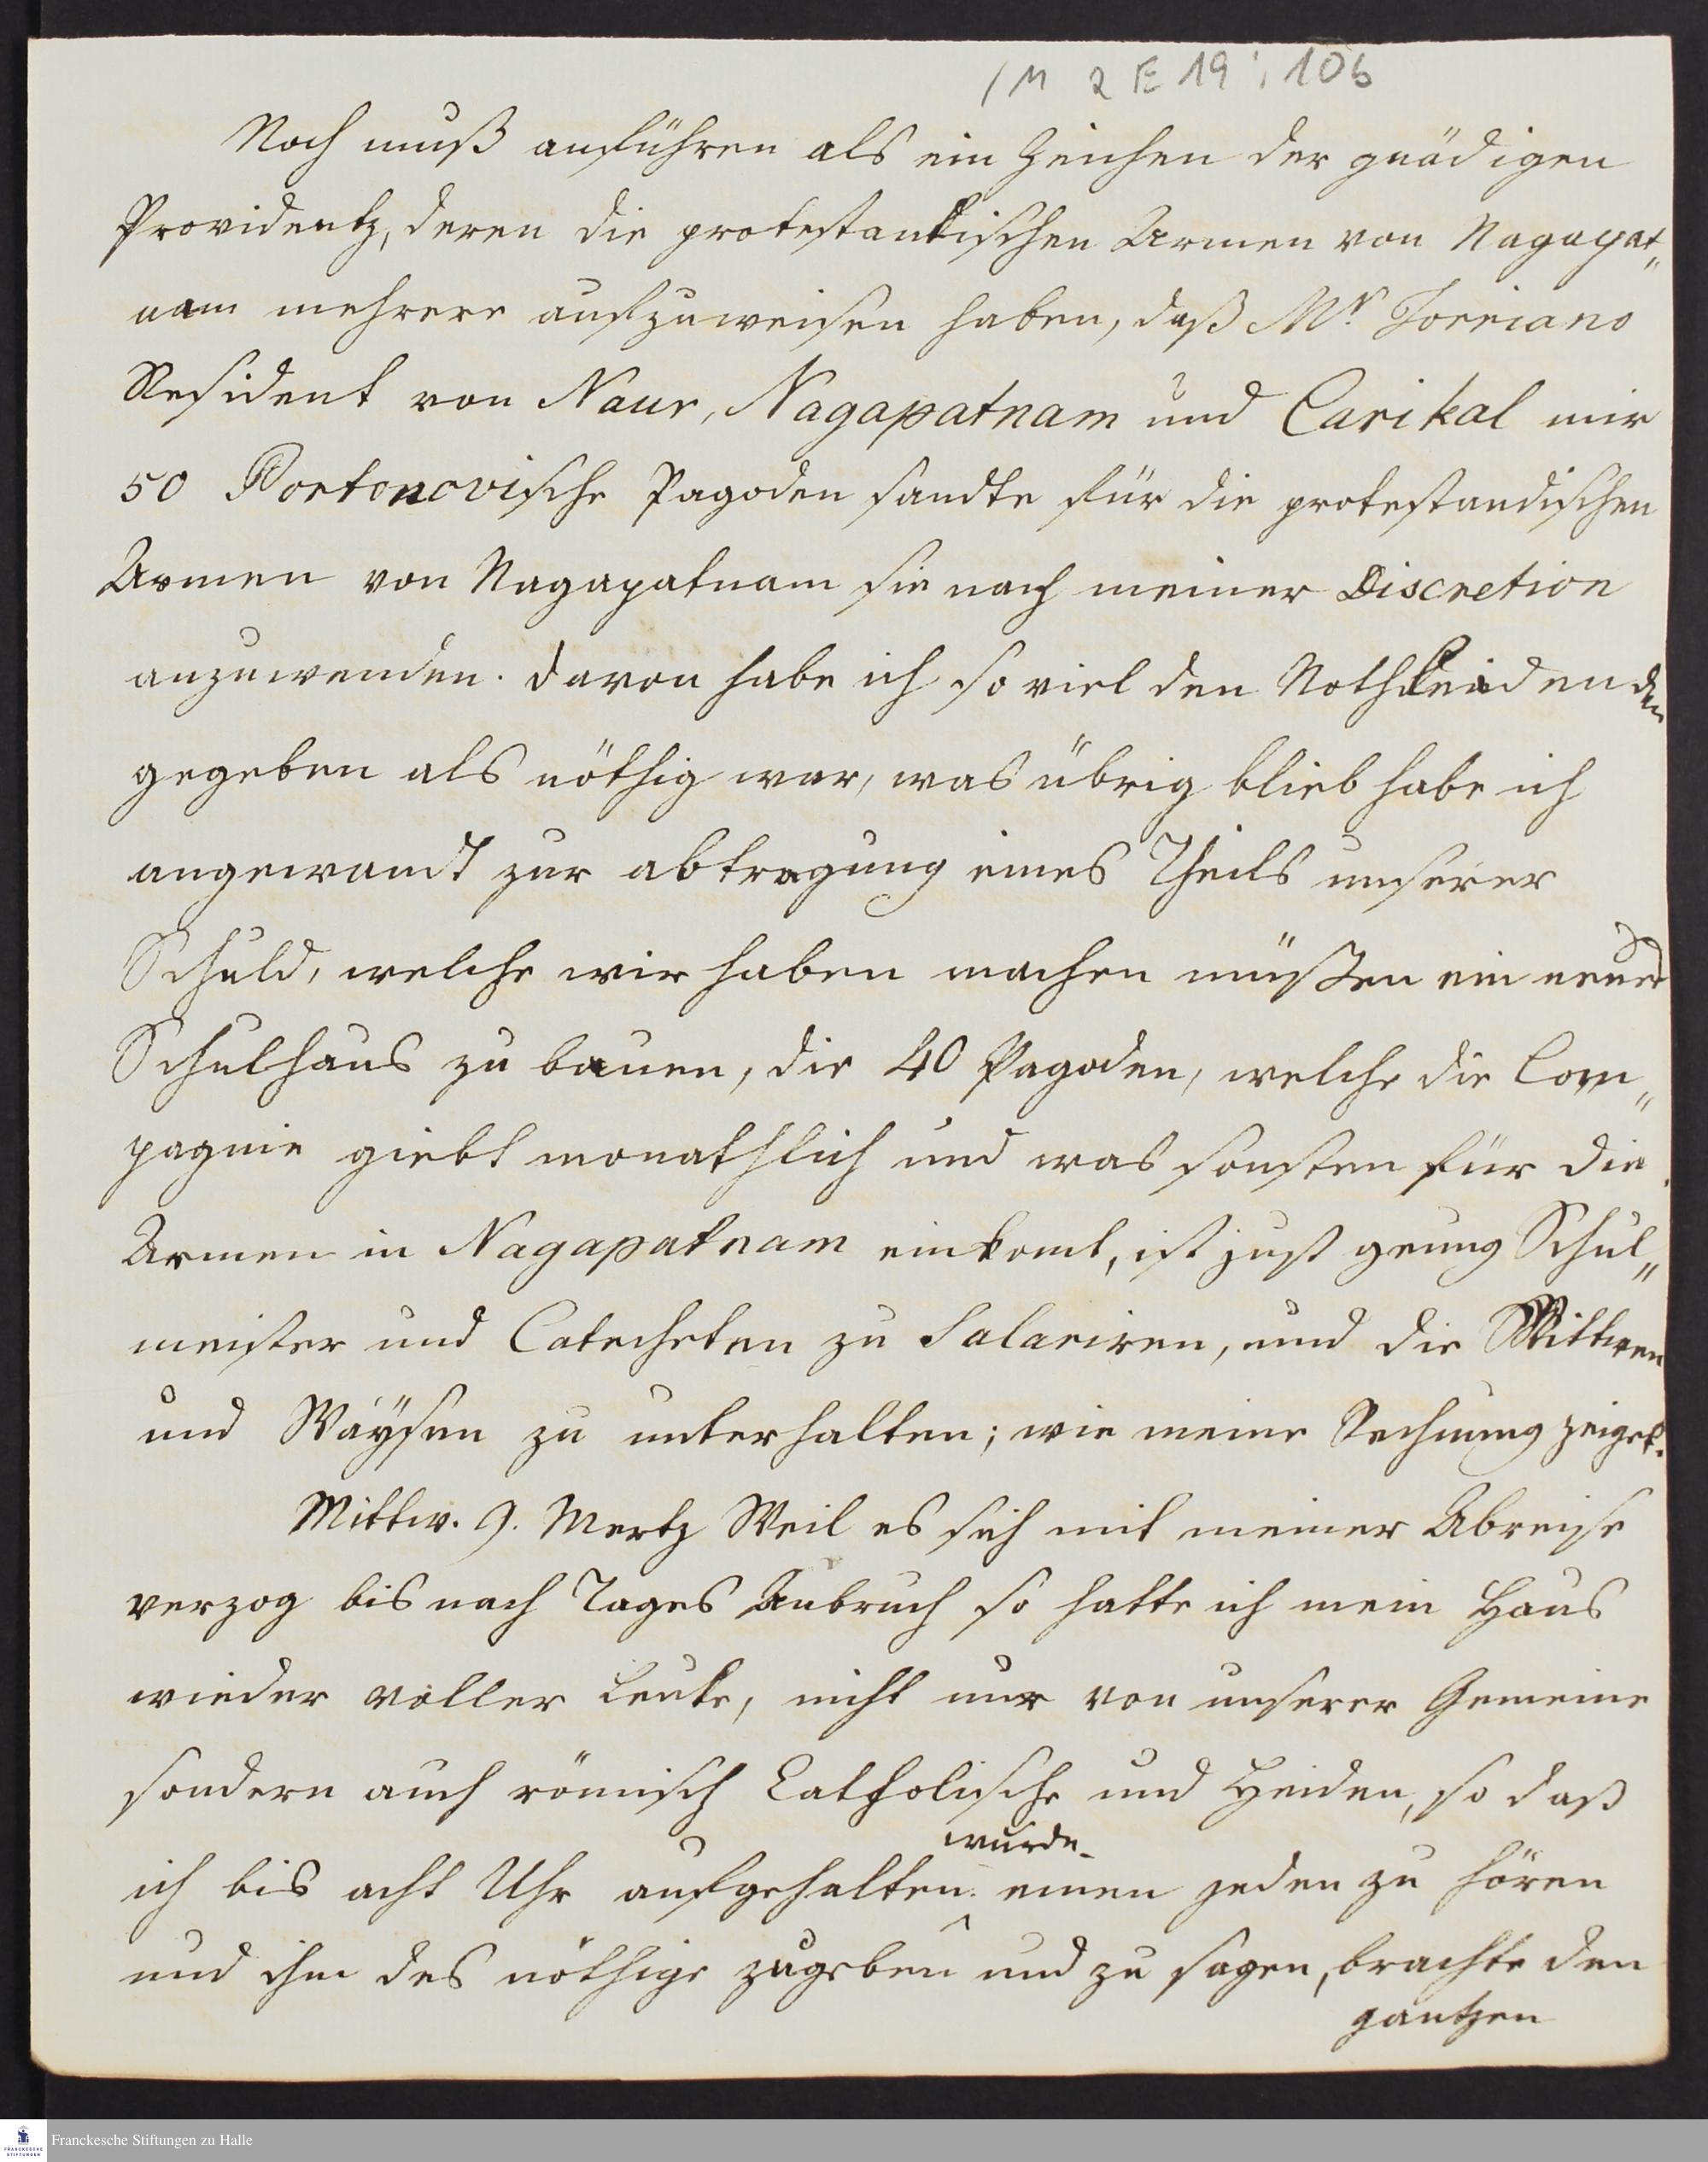 1M 2 E 19 : 106
Noch muß anführen als ein Zeichen der gnädigen
Providentz, deren die protestantischen Armen von Nagapat„
nam mehrere aufzuweisen haben, daß Mr. Torriano
Resident von Naur, Nagapatnam und Carikal mir
50 Portonovische Pagoden sandte für die protestandischen
Armen von Nagapatnam sie nach meiner Discretion
anzuwenden. davon habe ich so viel den Nothleidenden
gegeben als nöthig war, was übrig blieb habe ich
angewandt zur abtragung eines Theils unserer
Schuld, welche wir haben machen müßen ein neues
Schulhaus zu bauen, die 40 Pagoden, welche die Com„
pagnie giebt monathlich und was sonsten für die
Armen in Nagapatnam einkomt, ist just genug Schul„
meister und Catecheten zu Salariren, und die Wittwen
und Wäysen zu unterhalten; wie meine Rechnung zeiget.
Mittw. 9. Mertz Weil es sich mit meiner Abreise
verzog bis nach Tages Anbruch so hatte ich mein Haus
wieder voller Leute, nicht nur von unserer Gemeine
sondern auch römisch Catholische und Heiden, so daß
wurde
ich bis acht Uhr aufgehalten. einen jeden zu hören
und ihm das nöthige zugeben und zu sagen, brachte den
gantzen
Franckesche Stiftungen zu Halle